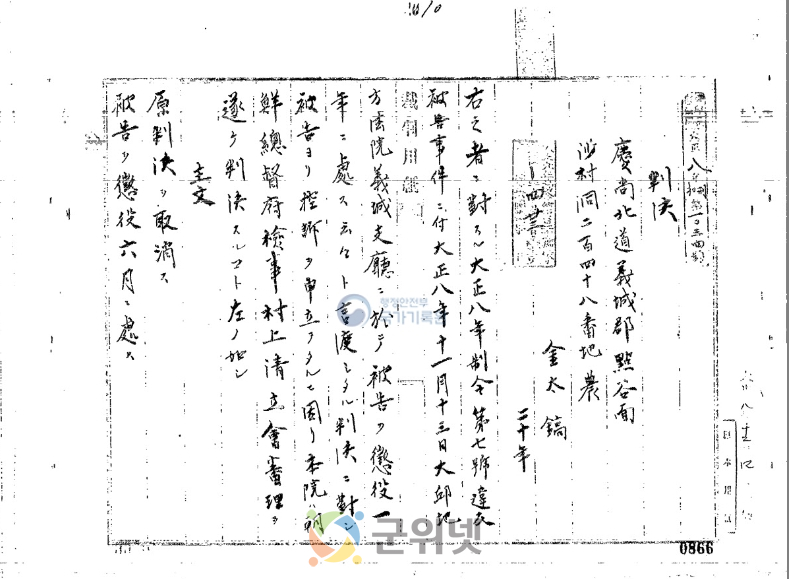 判決
慶尚北道義城郡點谷面
沙村洞二百四十八番地農
金太鎬
二十年
右之者ニ對スル大正八年制令第七號違反
被告事件ニ付大正八年十一月十三日大邱地
方法院義城支廳ニ於テ被告ヲ懲役一
年ニ處ス云々ト言渡シタル判決ニ對シ
被告ヨリ控訴ヲ申立テタルニ因リ本院ハ朝
鮮總督府檢事村上清立會審理ヲ
遂ケ判決スルコト左ノ如シ
主文
原判決ヲ取消ス
被告ヲ懲役六月ニ處ス
행정안전부
국가기록원
군위넷
0866